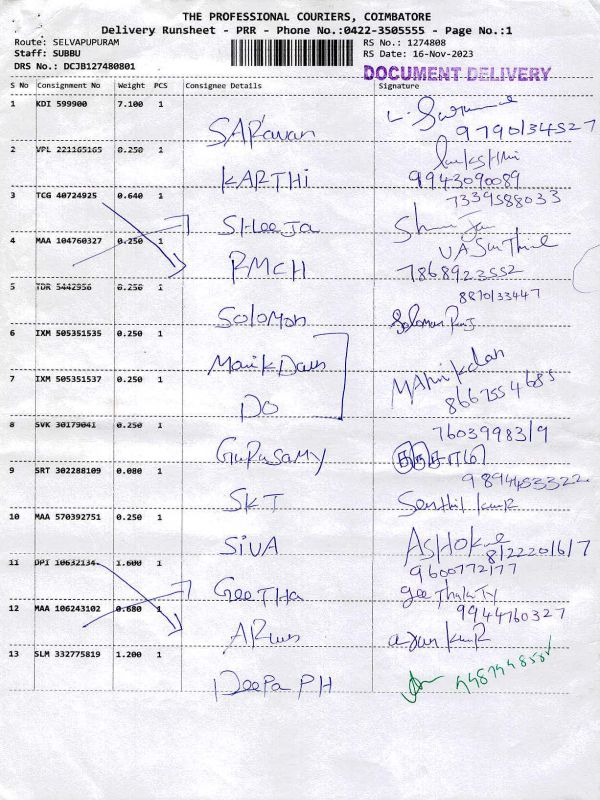 THE PROFESSIONAL COURIERS, COIMBATORE
Delivery Runsheet - PRR - Phone No.:0422-3505555 - Page No.:1
Route: SELVAPUPURAM RS No.: 1274808
Staff: SUBBU RS Date: 16-Nov-2023
DRS No.: DCJB127480801 DOCUMENT DELIVERY
S No Consignment No Weight PCS Consignee Details Signature
1 KDI 599900 7.100 1
SARavan 9790134527
2 VPL 221165165 0.250 1
KARTHi 9943090089
3 TCG 40724925 0.640 1 7339588033
SHeeJa
4 MAA 104760327 0.250 1
RMCH 7868923552
5 TDR 5442956 0.250 1 8870133447
Solomon Solomon Raj
6 IXM 505351535 0.250 1
7 IXM 505351537 0.250 1 Manikdan
DO 8667554685
8 SVK 30179041 0.250 1
GuRuSamy
9 SRT 302288109 0.080 1 9894453322
SKT Senthil kumR
10 MAA 570392751 0.250 1
SiVA ASHOK
11 DPI 10632134 1.600 1 9600772177
GeeTHa
12 MAA 106243102 0.680 1 9944760327
ARun
13 SLM 332775819 1.200 1
Deepa PH